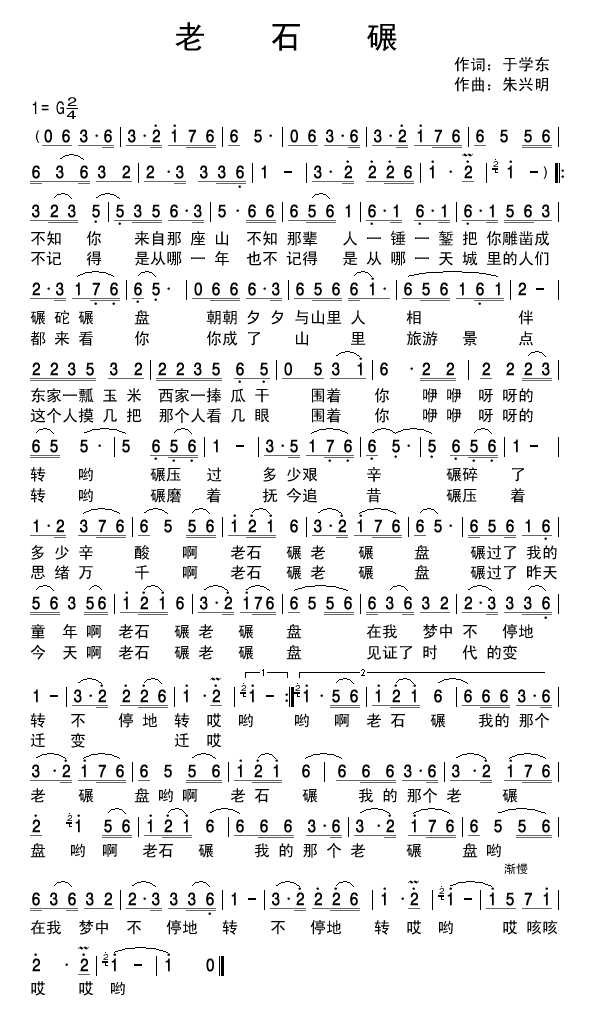 老 石 碾
作词：于学东
作曲：朱兴明
1=G 2/4
(0 6 3·6|3·2 1 7 6|6 5·|0 6 3·6|3·2 1 7 6|6 5 5 6|
6 3 6 3 2|2·3 3 3 6|1 -|3·2 2 2 6|1·2|2 1 -):
3 2 3 5|5 3 5 6·3|5·6 6|6 5 6 1|6·1 6·1|6·1 5 6 3|
不知 你 来自那 座 山 不知 那辈 人 一 锤 一 錾 把 你雕凿成
不记 得 是从哪 一 年 也不 记得 是 从 哪 一 天 城 里的人们
2·3 1 7 6|6 5·|0 6 6 6·3|6 5 6 6 1·|6 5 6 1 6 1|2 -|
碾 砣 碾 盘 朝朝 夕 夕 与山里 人 相 伴
都 来 看 你 你成 了 山 里 旅游 景 点
2 2 3 5 3 2|2 2 3 5 6 5|0 5 3 1|6· 2 2|2 2 2 3|
东家一瓢 玉 米 西家一捧 瓜 干 围着 你 咿 咿 呀 呀的
这个人摸 几 把 那个人看 几 眼 围着 你 咿 咿 呀 呀的
6 5 5·|5 6 5 6|1 -|3·5 1 7 6|6 5·|5 6 5 6|1 -|
转 哟 碾压 过 多 少艰 辛 碾碎 了
转 哟 碾磨 着 抚 今追 昔 碾压 着
1·2 3 7 6|6 5 5 6|1 2 1 6|3·2 1 7 6|6 5·|6 5 6 1 6|
多 少 辛 酸 啊 老石 碾 老 碾 盘 碾过了 我的
思 绪 万 千 啊 老石 碾 老 碾 盘 碾过了 昨天
5 6 3 5 6|1 2 1 6|3·2 1 7 6|6 5 5 6|6 3 6 3 2|2·3 3 3 6|
童 年 啊 老石 碾 老 碾 盘 在我 梦中 不 停地
今 天 啊 老石 碾 老 碾 盘 见证了 时 代 的变
1 -|3·2 2 2 6|1·2|2 1 -:|2 1·5 6|1 2 1 6|6 6 6 3·6|
转 不 停地 转 哎 哟 哟 啊 老 石 碾 我的 那个
迁 变 迁 哎
3·2 1 7 6|6 5 5 6|1 2 1 6|6 6 6 3·6|3·2 1 7 6|
老 碾 盘 哟 啊 老 石 碾 我 的 那个 老 碾
2 2 1 5 6|1 2 1 6|6 6 6 3·6|3·2 1 7 6|6 5 5 6|
盘 哟 啊 老石 碾 我 的 那 个 老 碾 盘 哟
渐慢
6 3 6 3 2|2·3 3 3 6|1 -|3·2 2 2 6|1·2|2 1 -|1 5 7 1|
在我 梦中 不 停地 转 不 停地 转 哎 哟 哎 咳咳
2·2|2 1 -|1 0‖
哎 哎 哟